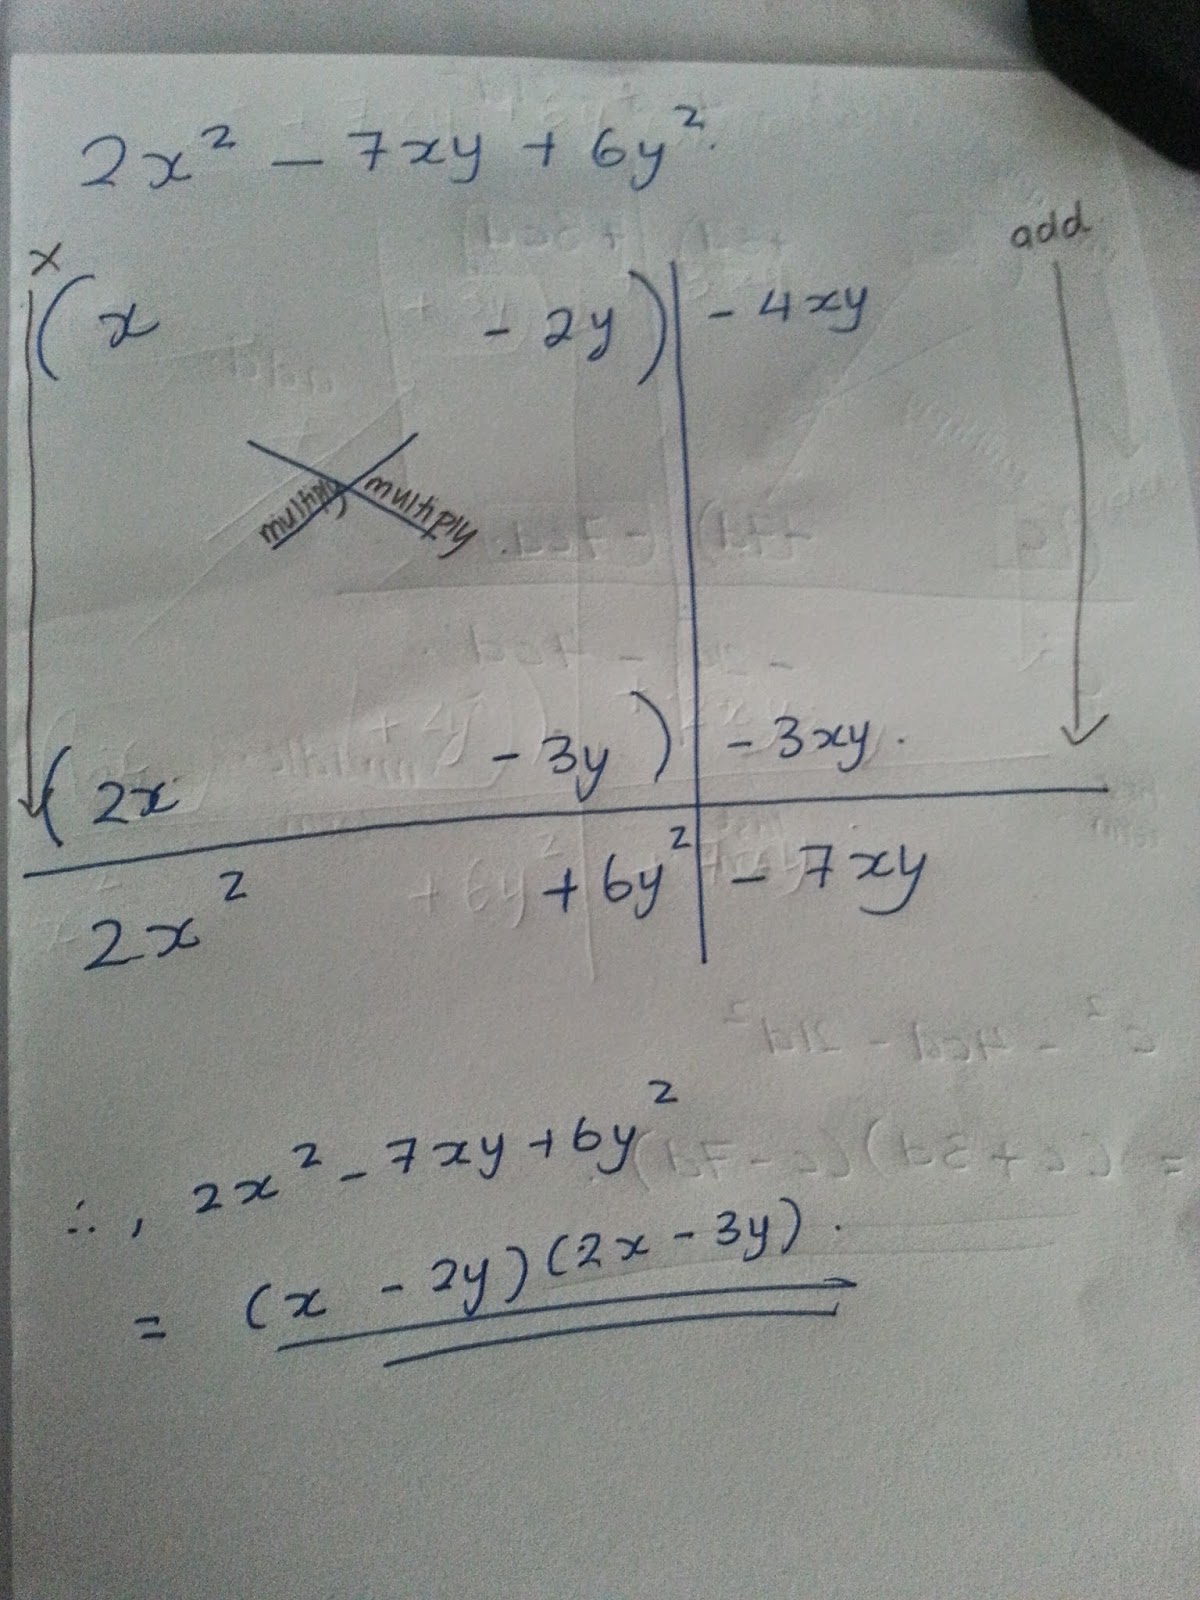 2x² - 7xy + 6y².
x add
(x - 2y) - 4xy
multiply multiply.
(2x - 3y) - 3xy.
2x² + 6y² - 7xy
∴, 2x² - 7xy + 6y²
= (x - 2y)(2x - 3y).
c² - 4cd - 21d²
= (c + 3d)(c - 7d).